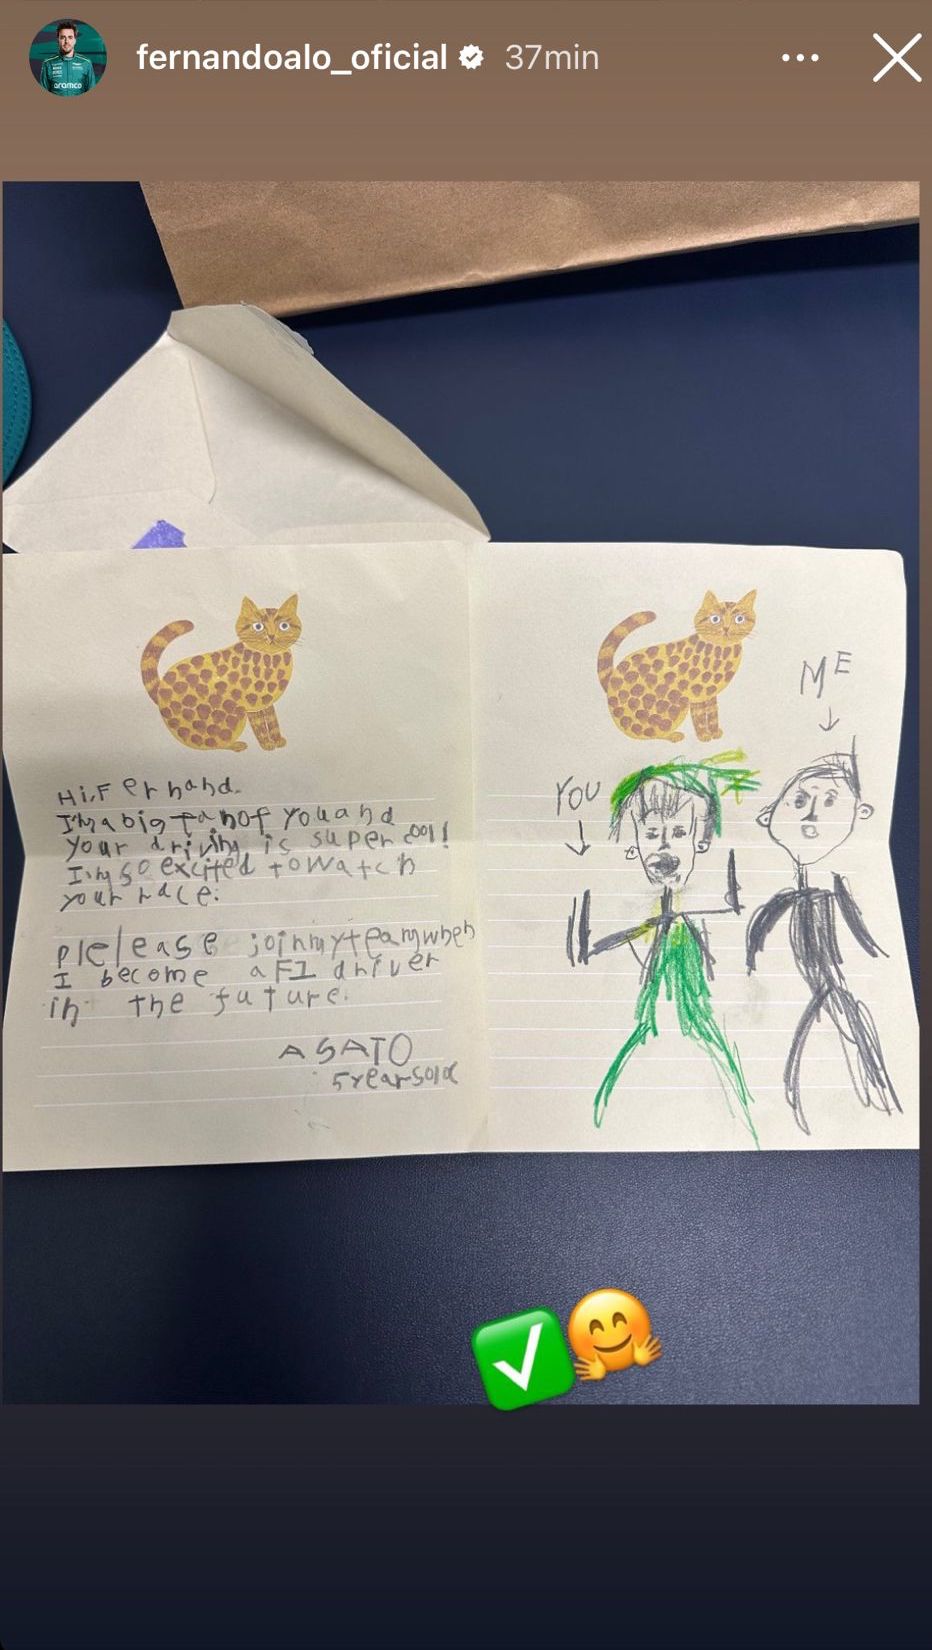 fernandoalo_oficial 37min
aramco
Hi,Fernand.
I'm a big fan of you and
your driving is super cool!
I'm so excited to watch
your race.
plelease join my team when
I become a F1 driver
in the future.
ASATO
5 years old
ME
YOU